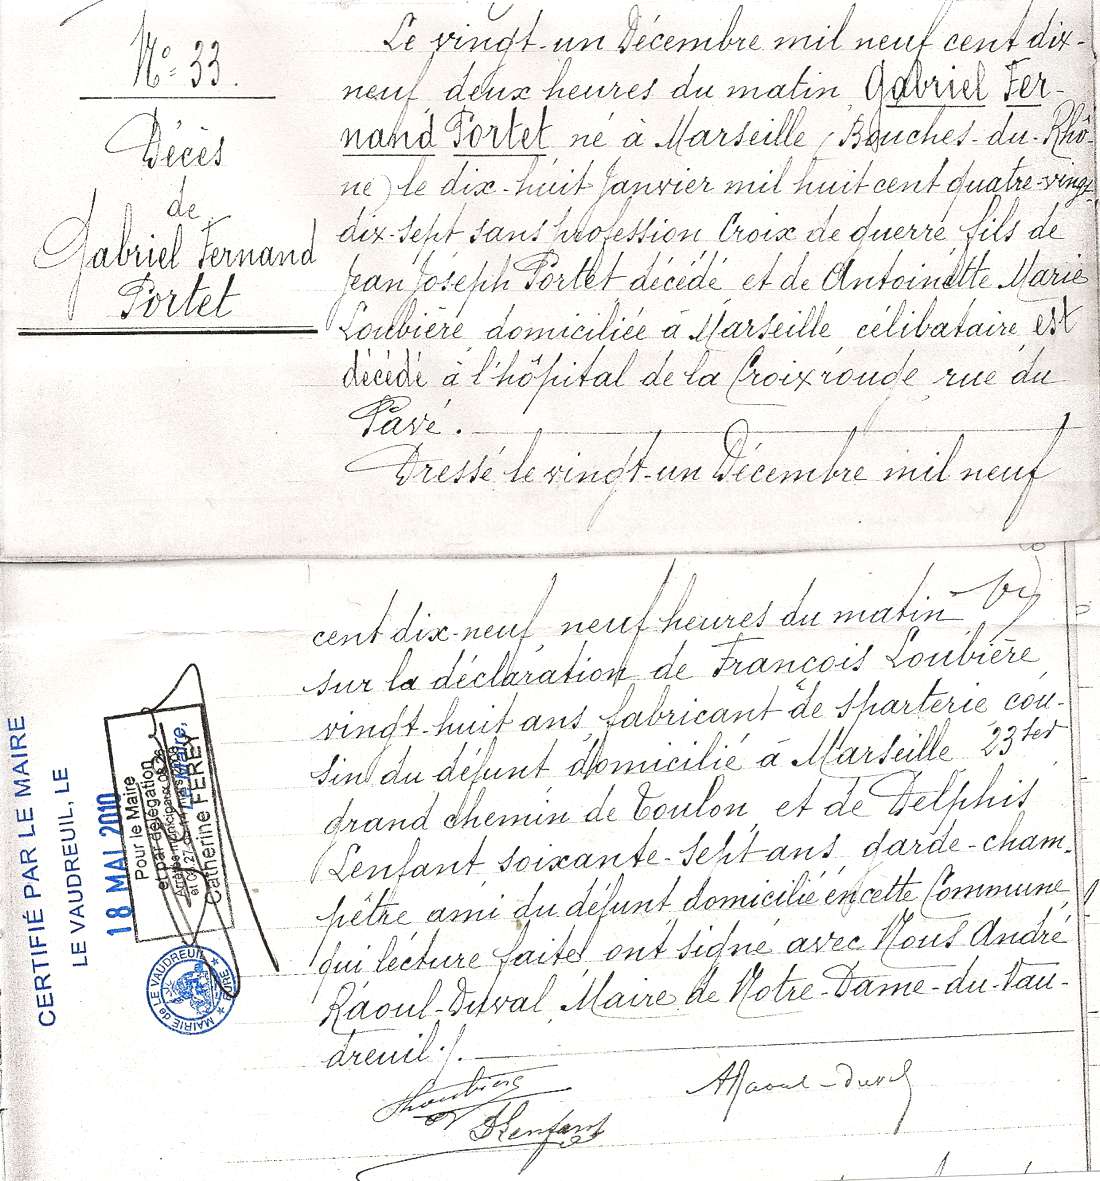 N° 33.
Décès
de
Gabriel Fernand
Portet
Le vingt-un Décembre mil neuf cent dix-
neuf deux heures du matin Gabriel Fer-
nand Portet né à Marseille (Bouches-du-Rhô-
ne) le dix-huit Janvier mil huit cent quatre-vingt
dix-sept sans profession Croix de guerre fils de
Jean Joseph Portet décédé et de Antoinette Marie
Loubière domiciliée à Marseille, célibataire, est
décédé à l'hôpital de la Croix rouge rue du
Pavé.
Dressé le vingt-un Décembre mil neuf
cent dix-neuf neuf heures du matin
sur la déclaration de François Loubière
vingt-huit ans, fabricant de sparterie cou-
sin du défunt domicilié à Marseille 23 ter
grand chemin de Toulon, et de Delphis
Lenfant soixante-sept ans, garde-cham-
pêtre ami du défunt domicilié en cette Commune,
qui lecture faite, ont signé avec Nous André
Raoul-Duval, Maire de Notre-Dame-du-Vau-
dreuil ./.
Loubière
DLenfant
ARaoul-Duval
CERTIFIÉ PAR LE MAIRE
LE VAUDREUIL, LE
18 MAI 2010
Pour le Maire
et par délégation
Le Maire,
Catherine FEREY
MAIRIE de LE VAUDREUIL ★ EURE ★